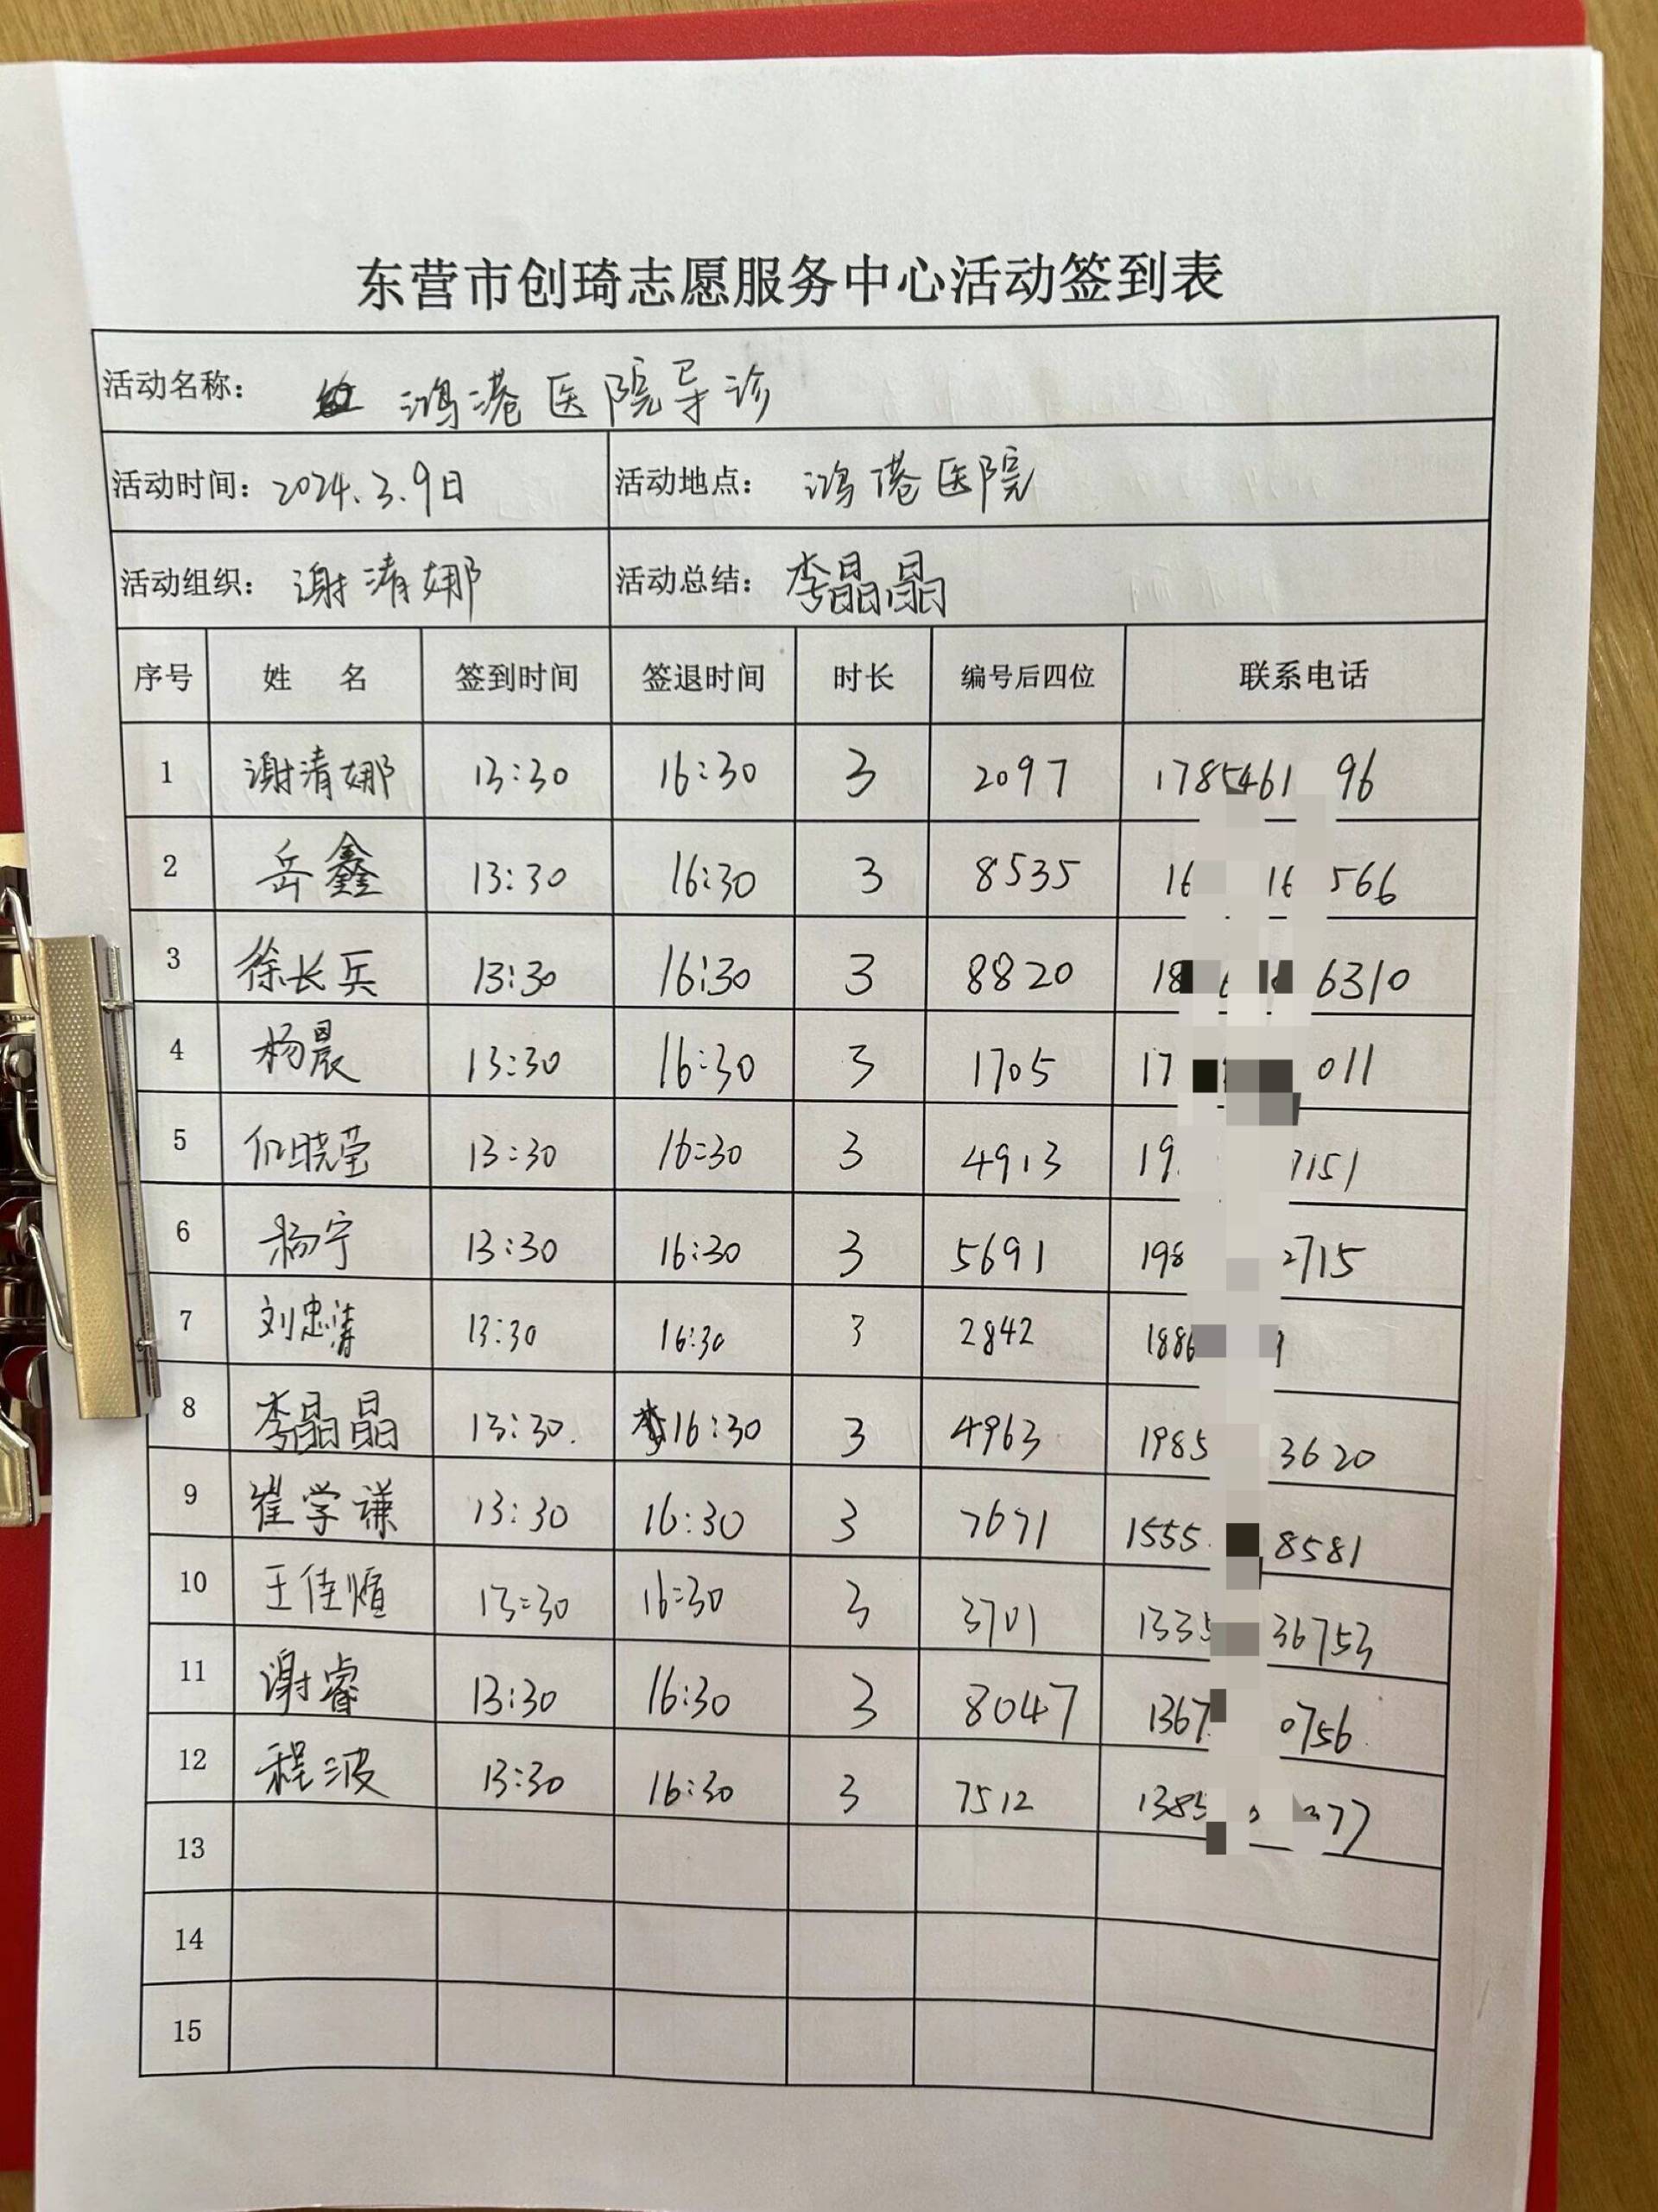 东营市创琦志愿服务中心活动签到表
活动名称： 鸿港医院导诊
活动时间：2024.3.9日 活动地点：鸿港医院
活动组织：谢清娜 活动总结：李晶晶
序号 姓 名 签到时间 签退时间 时长 编号后四位 联系电话
1 谢清娜 13:30 16:30 3 2097 1785461 96
2 岳鑫 13:30 16:30 3 8535 16 16 566
3 徐长兵 13:30 16:30 3 8820 18 6310
4 杨晨 13:30 16:30 3 1705 17 011
5 晓莹 13:30 16:30 3 4913 19 7151
6 杨宁 13:30 16:30 3 5691 198 2715
7 刘忠涛 13:30 16:30 3 2842 1886
8 李晶晶 13:30 16:30 3 4963 1985 3620
9 崔学谦 13:30 16:30 3 7671 1555 8581
10 王佳煊 13:30 16:30 3 3701 1335 36753
11 谢睿 13:30 16:30 3 8047 1367 0756
12 程波 13:30 16:30 3 7512 1385 377
13
14
15